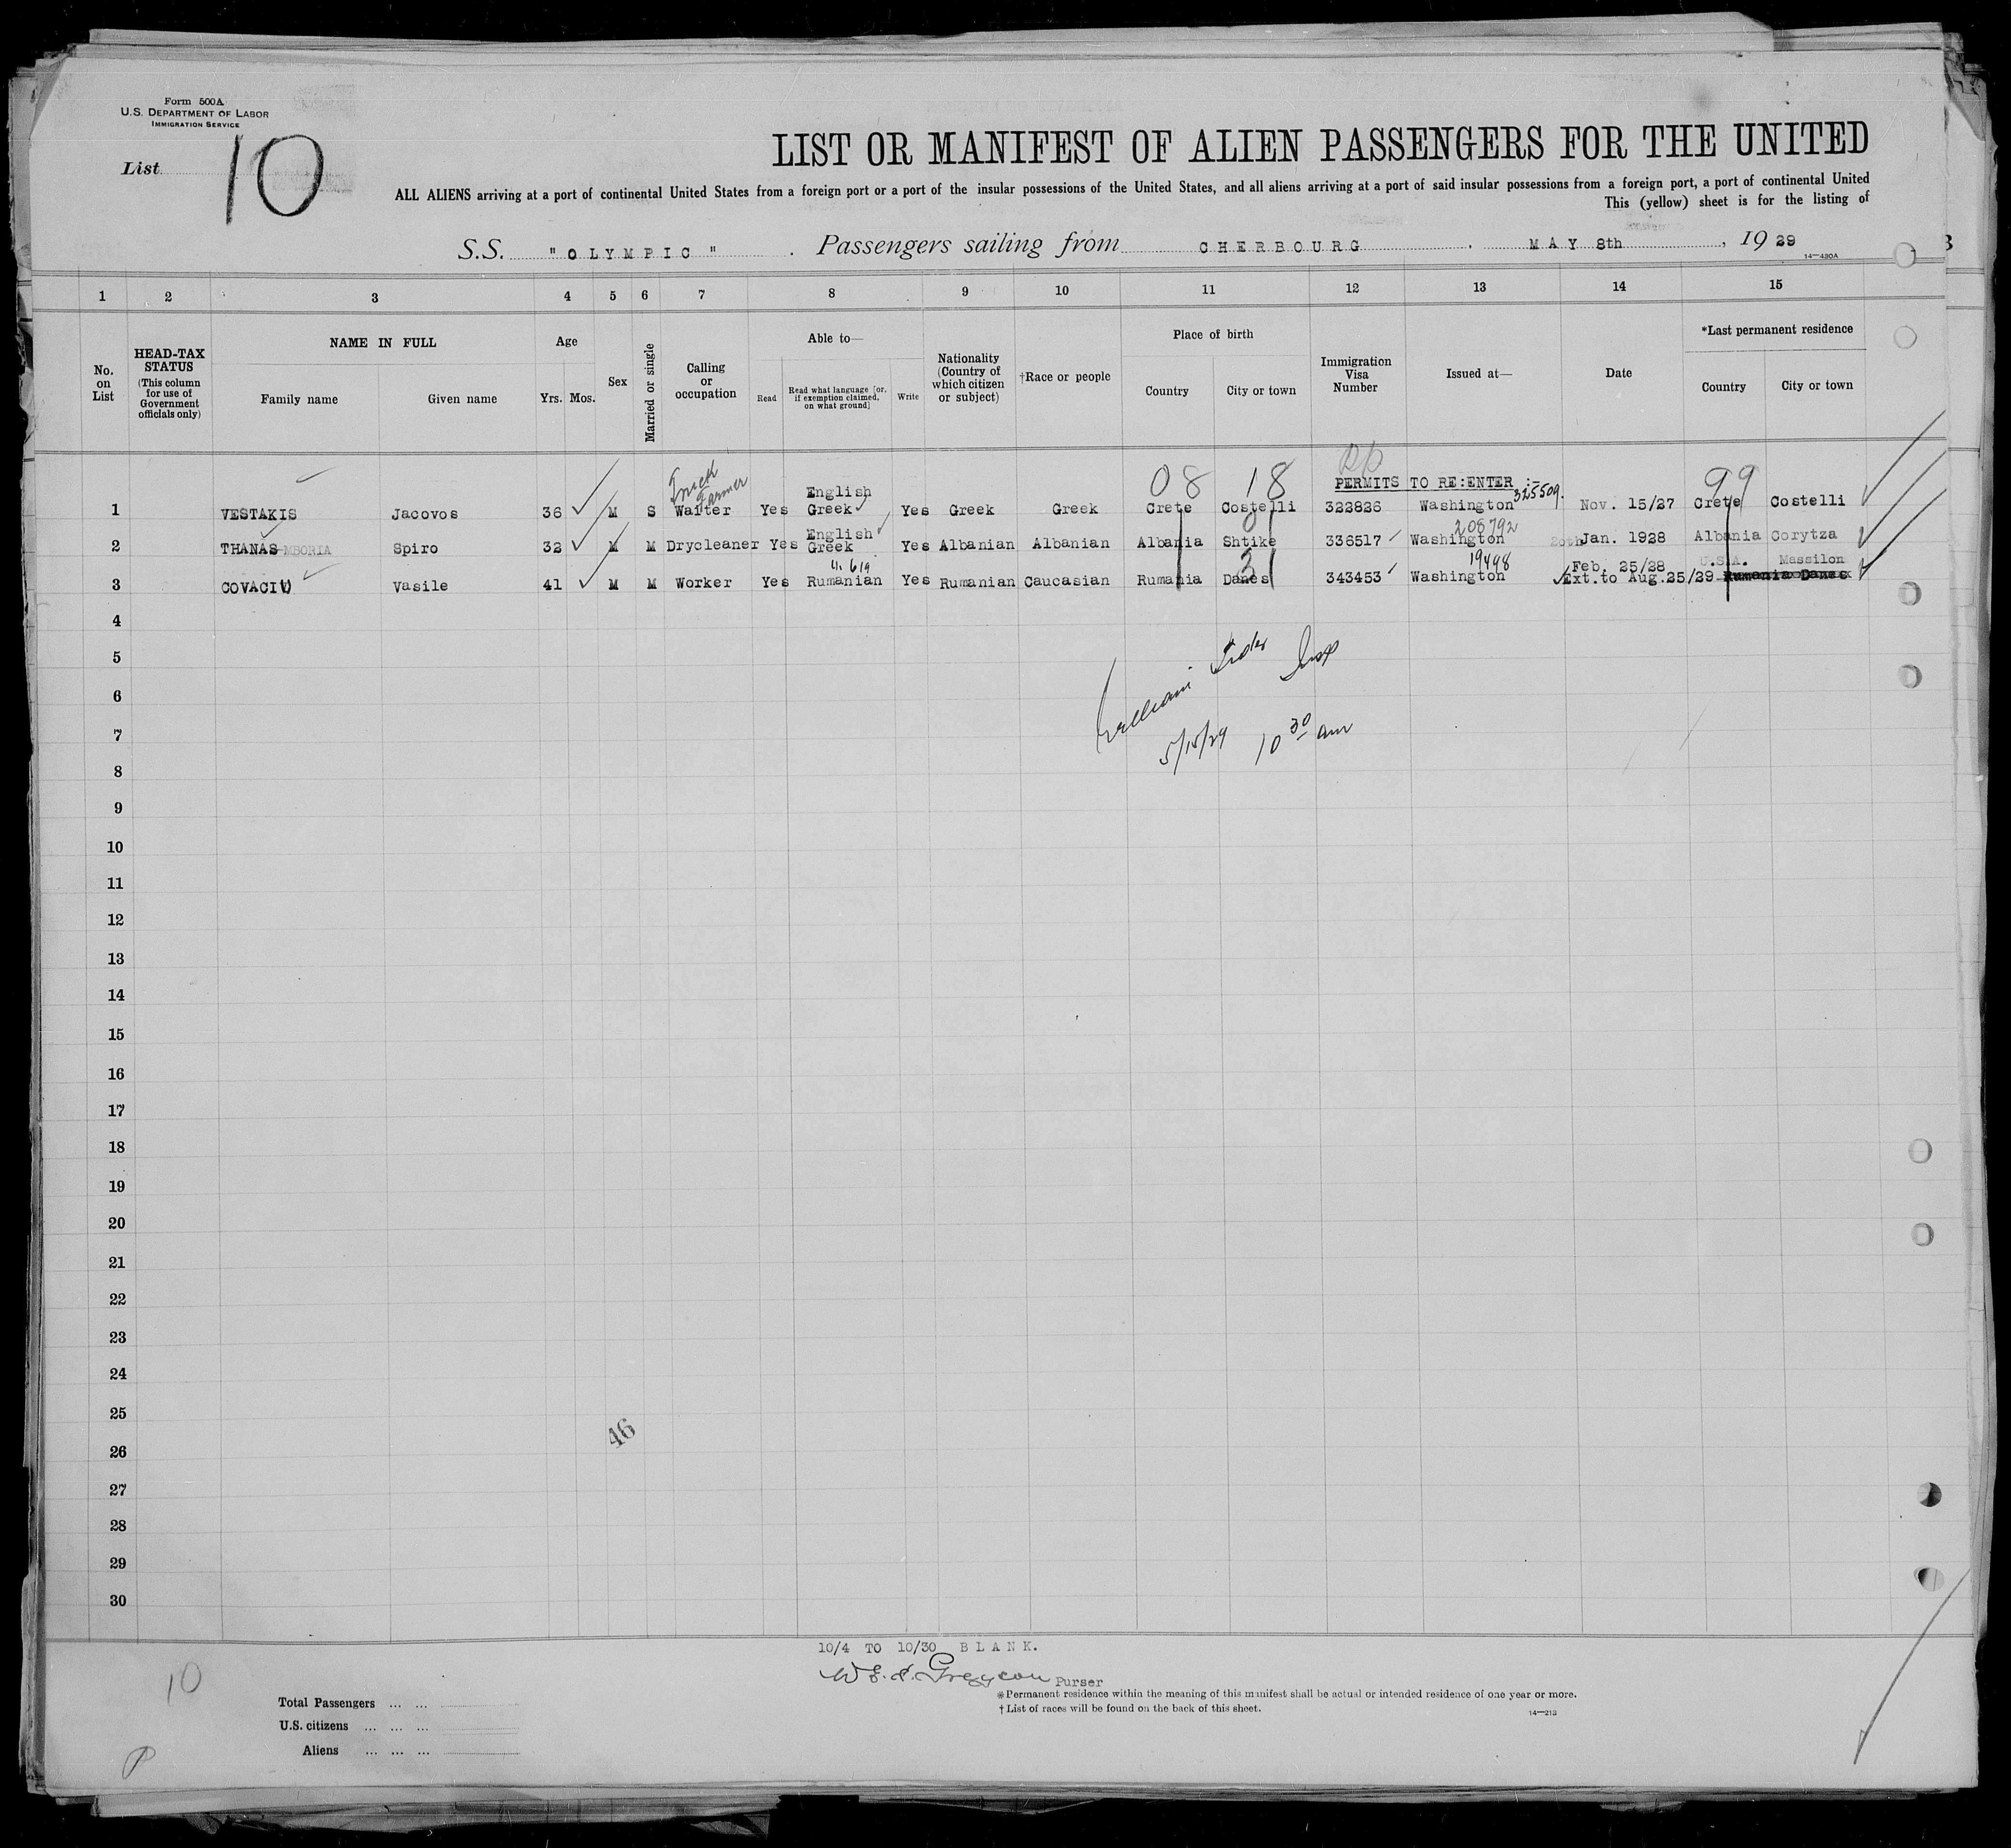 Form 500A
U.S. DEPARTMENT OF LABOR
IMMIGRATION SERVICE
List 10
LIST OR MANIFEST OF ALIEN PASSENGERS FOR THE UNITED
ALL ALIENS arriving at a port of continental United States from a foreign port or a port of the insular possessions of the United States, and all aliens arriving at a port of said insular possessions from a foreign port, a port of continental United
This (yellow) sheet is for the listing of
S.S. "OLYMPIC" . Passengers sailing from CHERBOURG , MAY 8th , 19 29
14—430A
1 2 3 4 5 6 7 8 9 10 11 12 13 14 15
No. on List
HEAD-TAX STATUS (This column for use of Government officials only)
NAME IN FULL
Family name Given name
Age
Yrs. Mos.
Sex
Married or single
Calling or occupation
Able to—
Read Read what language [or, if exemption claimed, on what ground] Write
Nationality (Country of which citizen or subject)
†Race or people
Place of birth
Country City or town
Immigration Visa Number
Issued at—
Date
*Last permanent residence
Country City or town
08 18 99
PERMITS TO RE:ENTER :-
Truck Farmer
English 325509.
1 VESTAKIS Jacovos 36 M S Waiter Yes Greek Yes Greek Greek Crete Costelli 322826 Washington Nov. 15/27 Crete Costelli
English 01 208792
2 THANAS-MBORIA Spiro 32 M M Drycleaner Yes Greek Yes Albanian Albanian Albania Shtike 336517 Washington 20th Jan. 1928 Albania Corytza
31 19498 Feb. 25/28 U.S.A. Massilon
3 COVACIU Vasile 41 M M Worker Yes Rumanian Yes Rumanian Caucasian Rumania Danes 343453 Washington Ext.to Aug.25/29 Rumania Danes
4
5
6
7
William
5/15/29 10 30 am
8
9
10
11
12
13
14
15
16
17
18
19
20
21
22
23
24
25
46
26
27
28
29
30
10/4 TO 10/30 BLANK.
Purser
10
Total Passengers ... ...
U.S. citizens ... ... ...
Aliens ... ... ...
*Permanent residence within the meaning of this manifest shall be actual or intended residence of one year or more.
†List of races will be found on the back of this sheet.
14—213
P